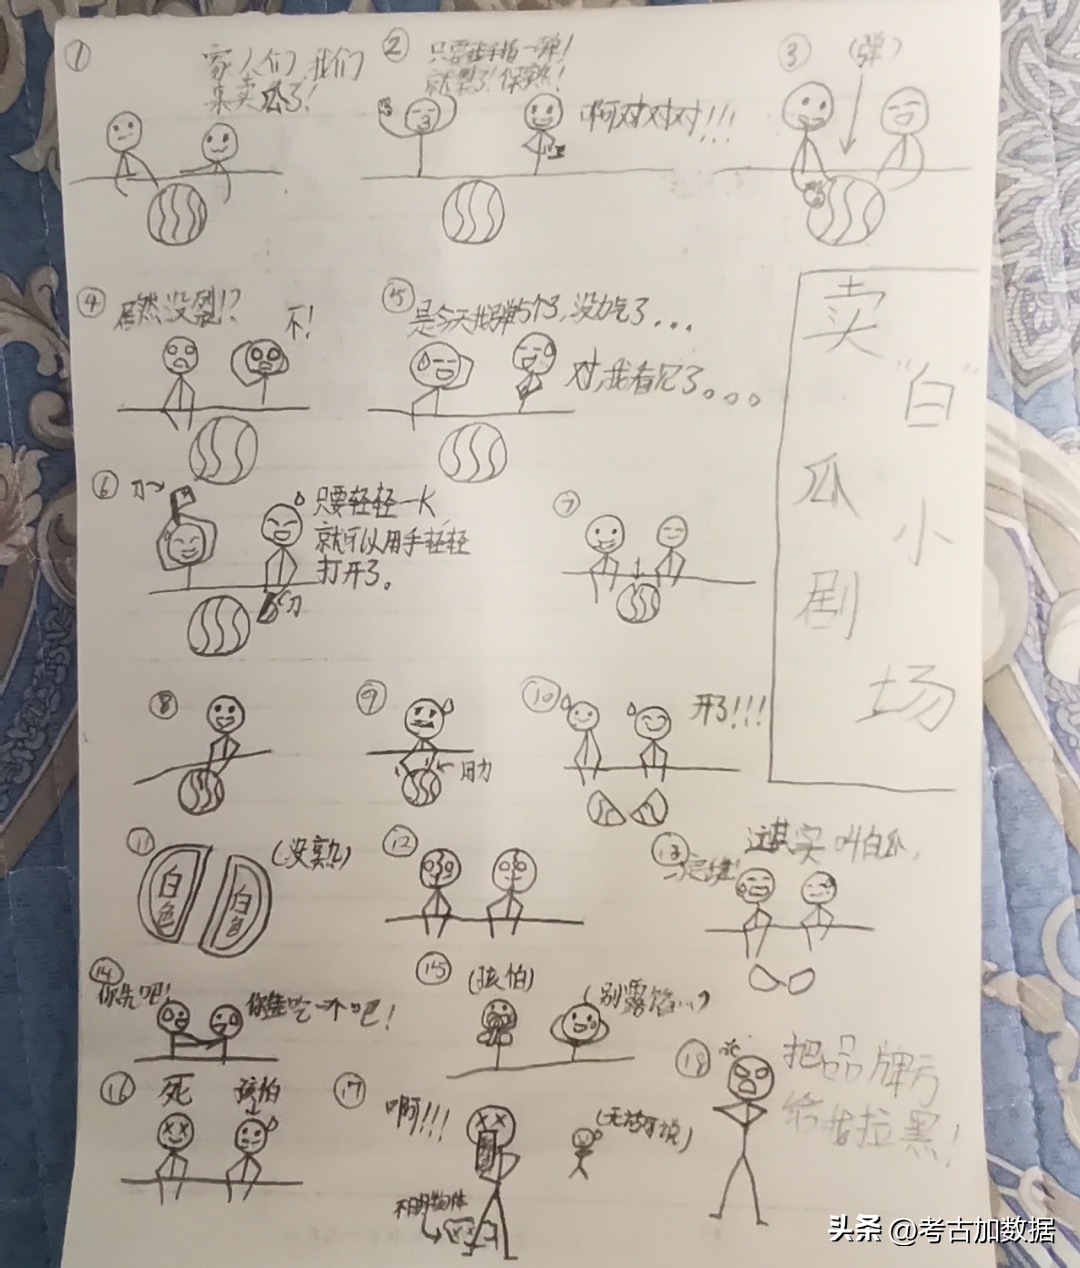 ①
家人们,我们
来卖瓜了!
②
只要拿手指一弹!
就裂了!保熟!
啊对对对!!!
③
(弹)
④
居然没裂!?
不!
⑤
是今天我弹5个了,没力气了...
对,我看见了。。。
卖瓜剧
"白"小场
⑥
刀→
只要轻轻一K
就可以用手轻轻
打开了。
刀
⑦
⑧
⑨
←用力
⑩
开了!!!
⑪
白色
白色
(没熟)
⑫
⑬
这其实叫白瓜,
⑭
你先吧!
你先吃一个吧!
⑮
(害怕)
(别露馅...)
⑯
死
害怕
⑰
啊!!!
(无话可说)
不明物体
⑱
把品牌方
给我拉黑!
头条 @考古加数据